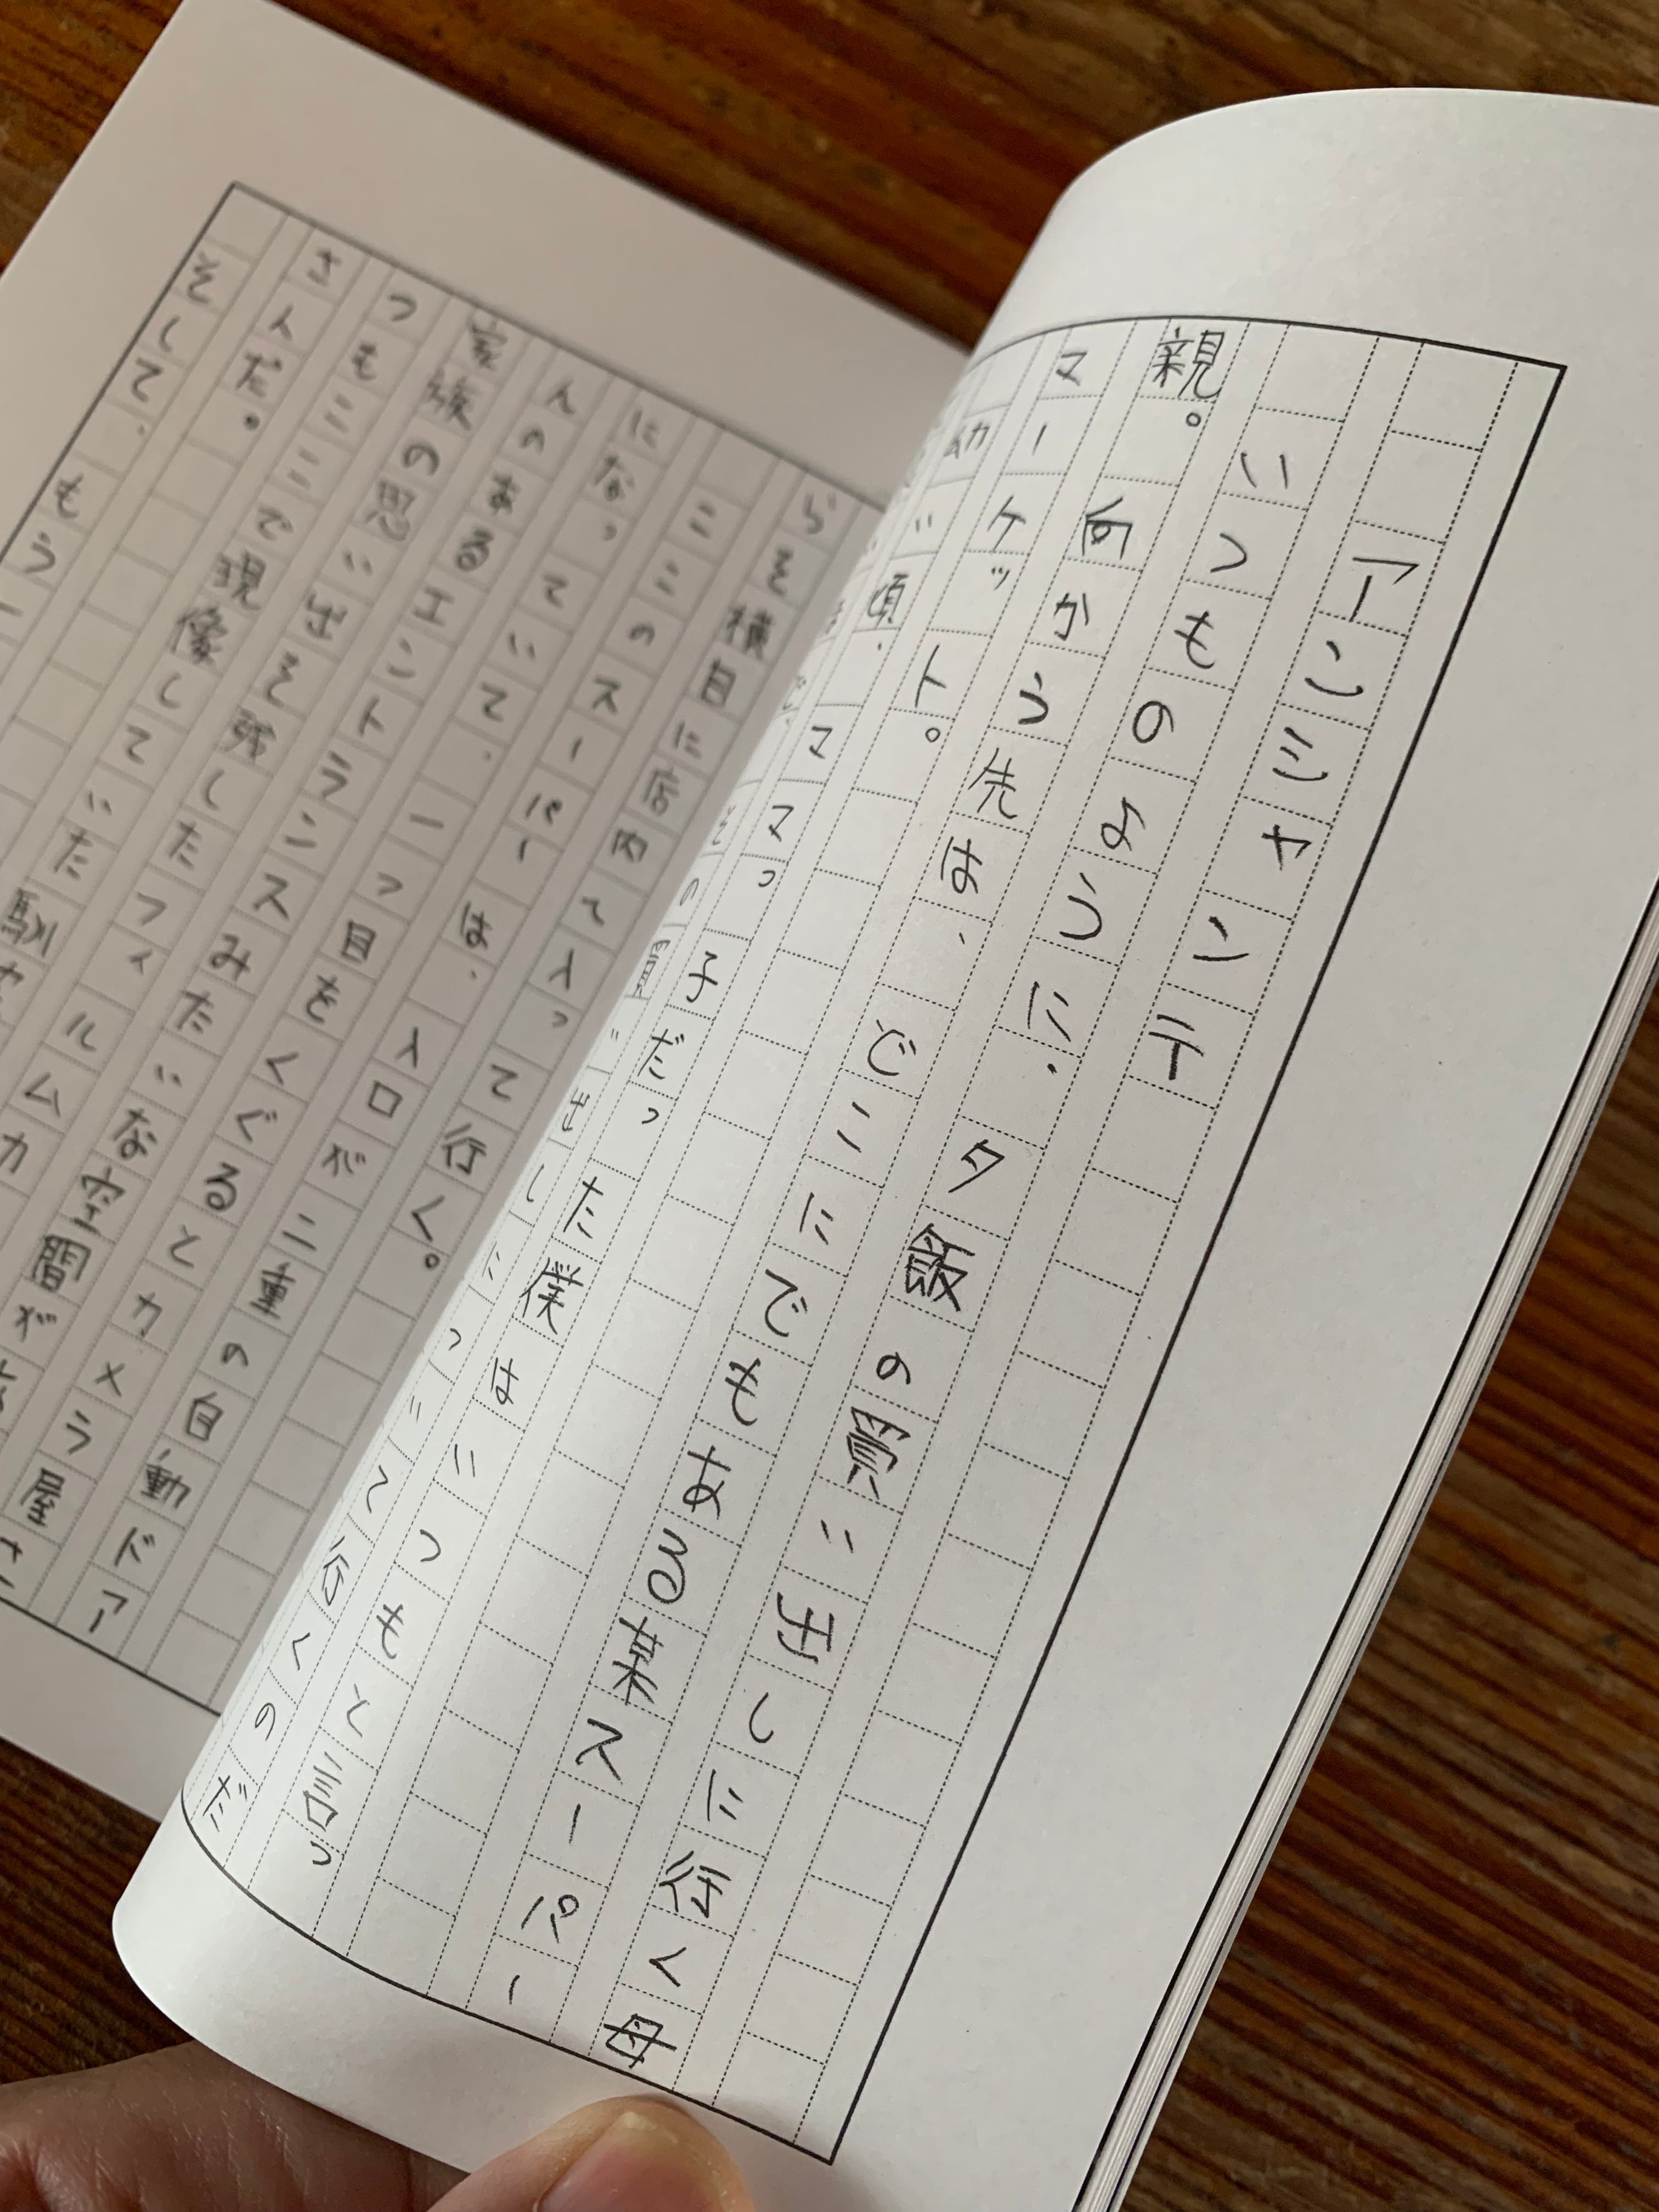 アンシャンテ
いつものように、夕飯の買い出しに行く母
親。向かう先は、どこにでもある某スーパー
マーケット。
幼い頃、ママっ子だった僕はいつもと言っ
その買い出しについて行くのだ
らを横目に店内へ入って行く。
ここのスーパーは、入口が二重の自動ドア
になっていて、一つ目をくぐるとカメラ屋さ
んのあるエントランスみたいな空間が
家族の思い出を残したフィルムカ
つもここで現像していた馴
さんだ。
そして、もう